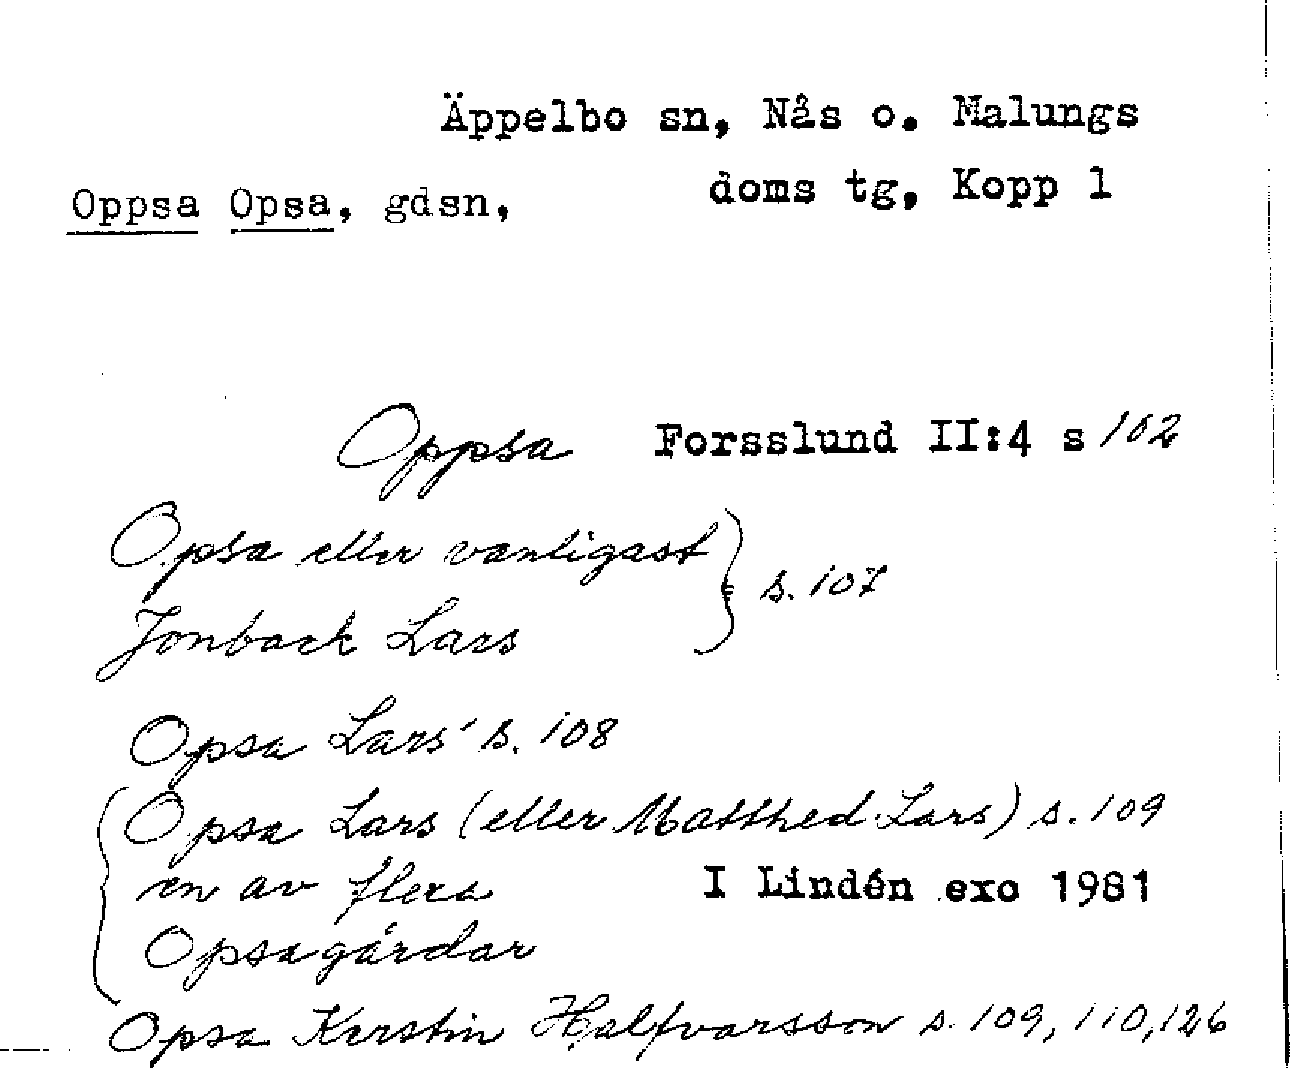 Äppelbo sn, Nås o. Malungs
doms tg, Kopp l
Oppsa Opsa, gdsn,
Oppsa Forsslund II:4 s 102
Opsa eller vanligast
Jonback Lars } s. 107
Opsa Lars' s. 108
Opsa Lars (eller Matthed Lars) s. 109
en av flera I Lindén exo 1981
Opsagårdar
Opsa Kerstin Halfvarsson s. 109, 110, 126